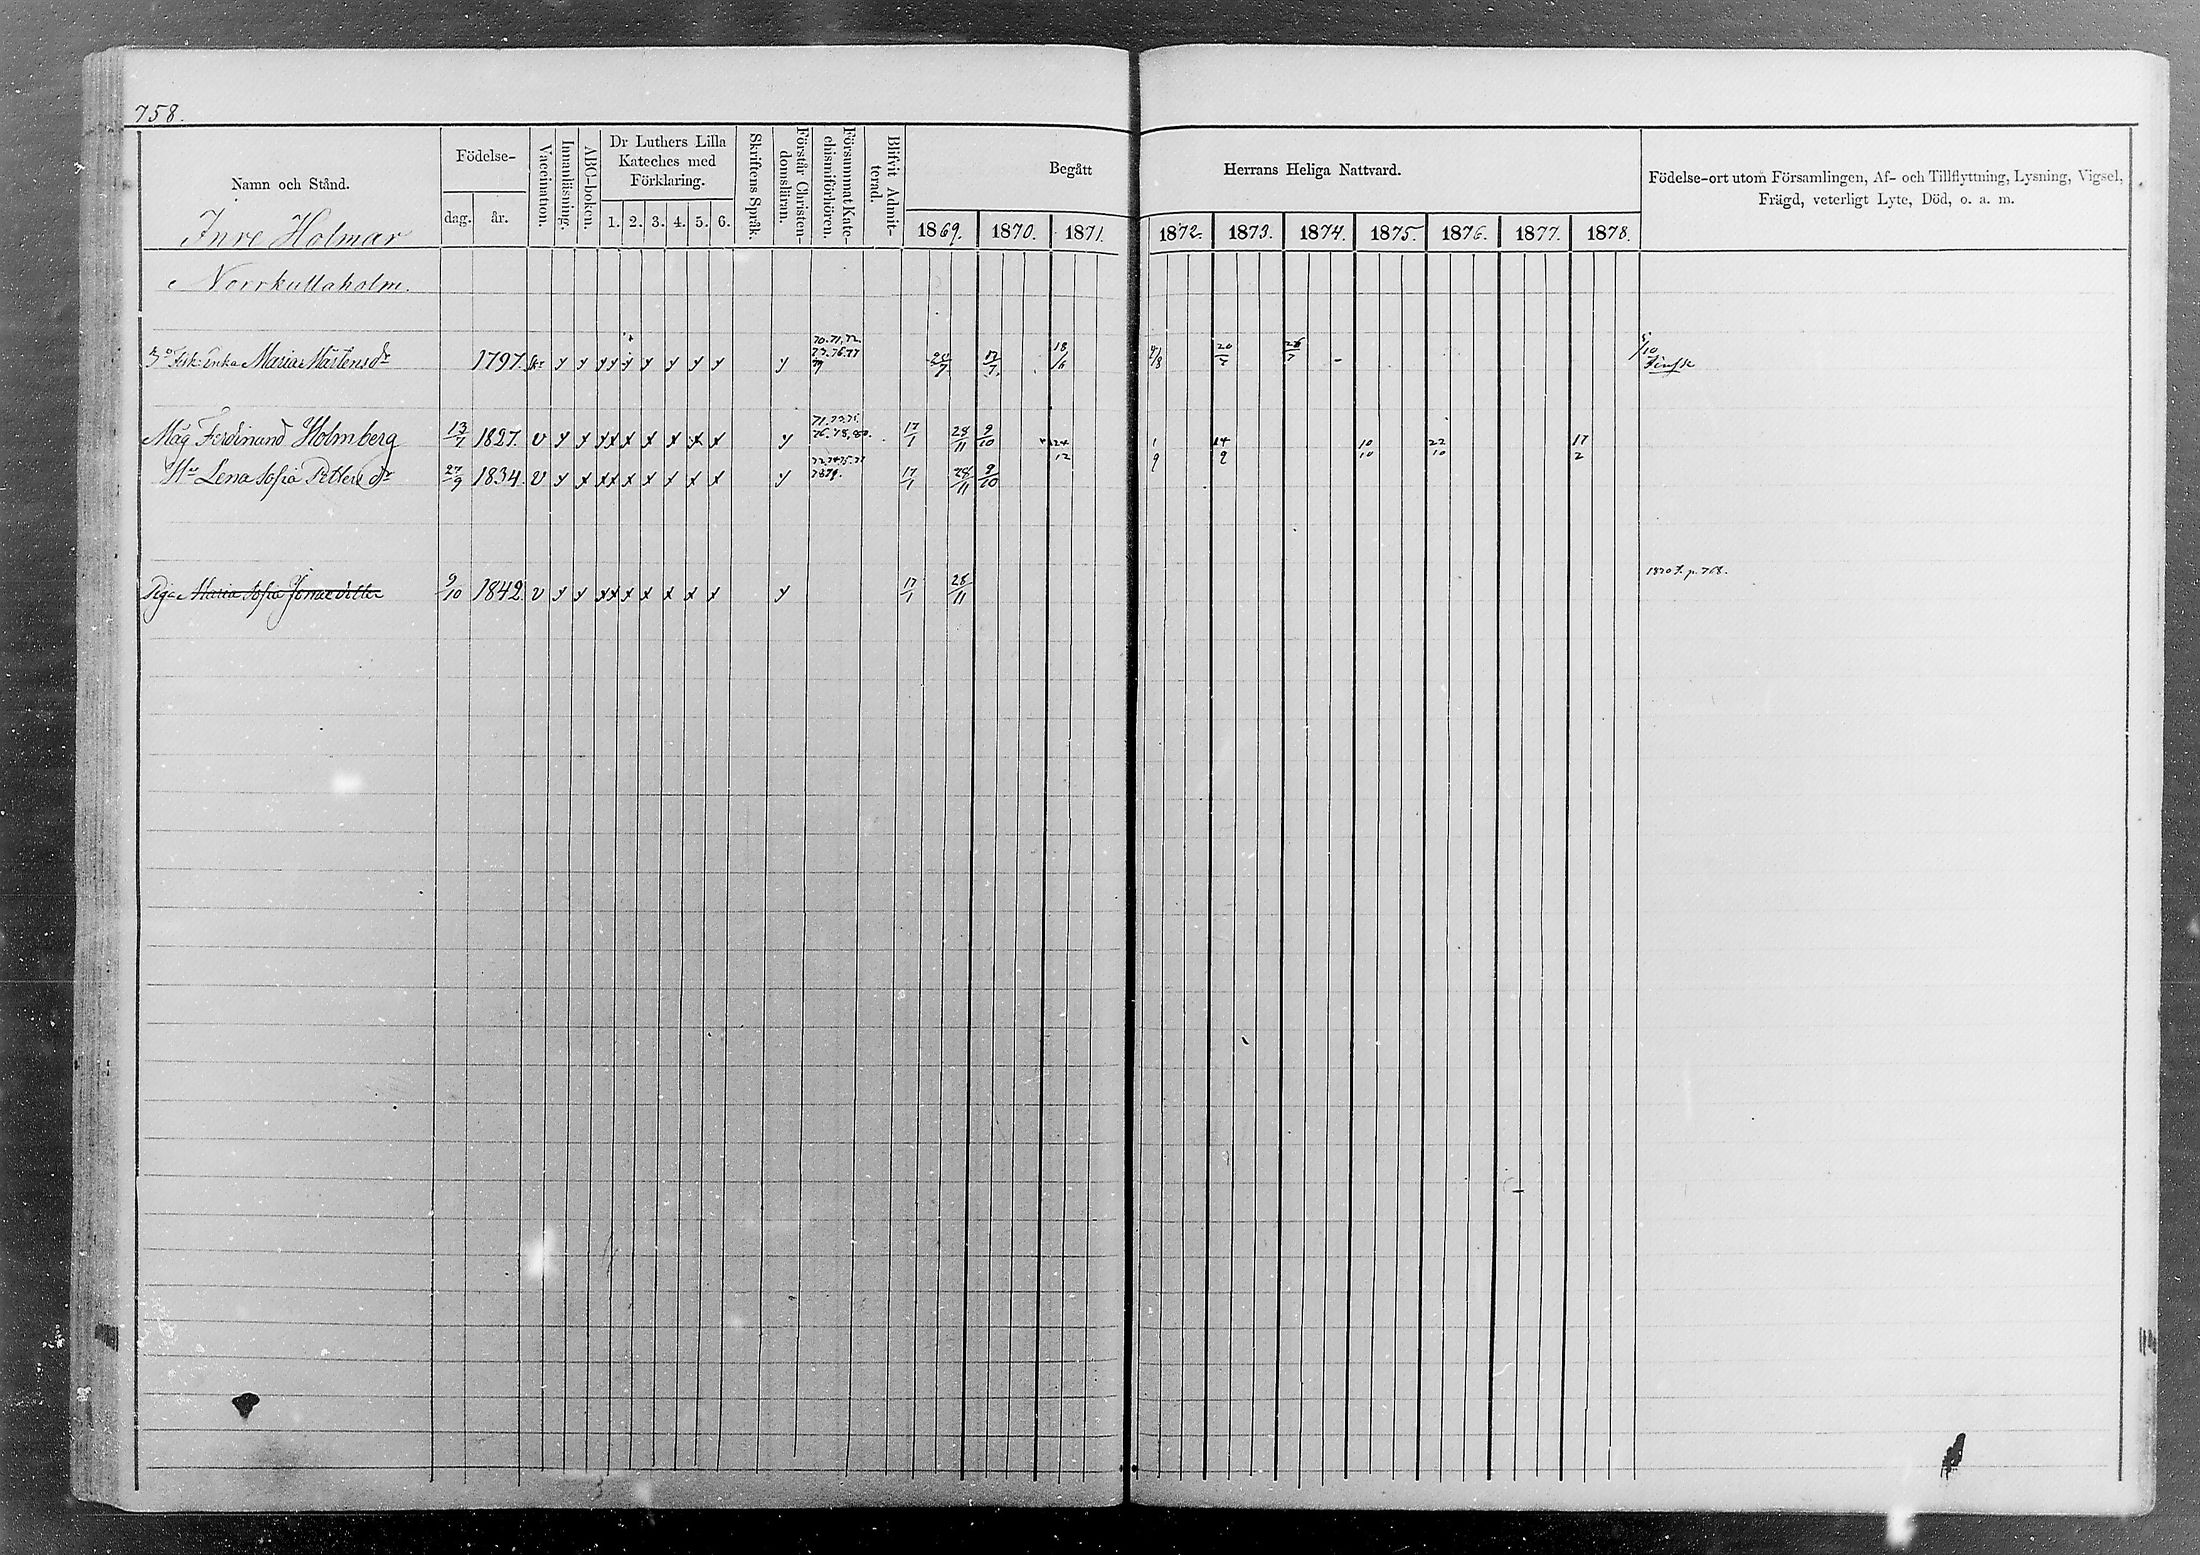 758.
Namn och Stånd.
Födelse-
dag. år.
Vaccination.
Innanläsning.
ABC-boken.
Dr Luthers Lilla
Kateches med
Förklaring.
1. 2. 3. 4. 5. 6.
Skriftens Språk.
Förstår Christen-
domsläran.
Försummat Kate-
chismiförhören.
Blifvit Admit-
terad.
Begått
Herrans Heliga Nattvard.
1869. 1870. 1871. 1872. 1873. 1874. 1875. 1876. 1877. 1878.
Födelse-ort utom Församlingen, Af- och Tillflyttning, Lysning, Vigsel,
Frägd, veterligt Lyte, Död, o. a. m.
Inre Holmar
Norrkullaholm.
Enka Maria Mårtensdr 1797. y y y y y y y y y 18/6 4/8 20/7 26/7
Måg Ferdinand Holmberg 13/7 1827. v x x x x x x x x x y 17/1 28/11 9/10 24/12 1/9 14/9 10/10 22/10 17/2
Hu Lena Sofia Pettersdr 27/9 1834. v x x x x x x x x x y 17/1 28/11 9/10
Piga Maria Sofia Jonasdotter 9/10 1842. v x x x x x x x x x y 17/1 28/11 1870 f. p. 768.